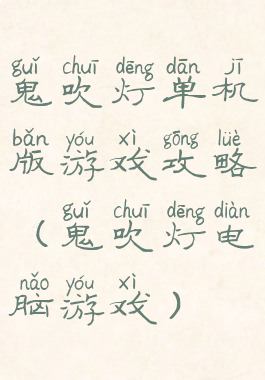 guǐ chuī dēng dān jī
鬼吹灯单机
bǎn yóu xì gōng lüè
版游戏攻略
guǐ chuī dēng diàn
（鬼吹灯电
nǎo yóu xì
脑游戏）